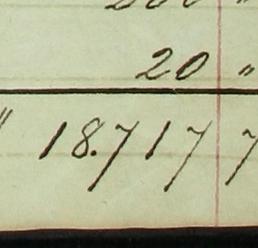 200 "
20 "
" 18.717 7